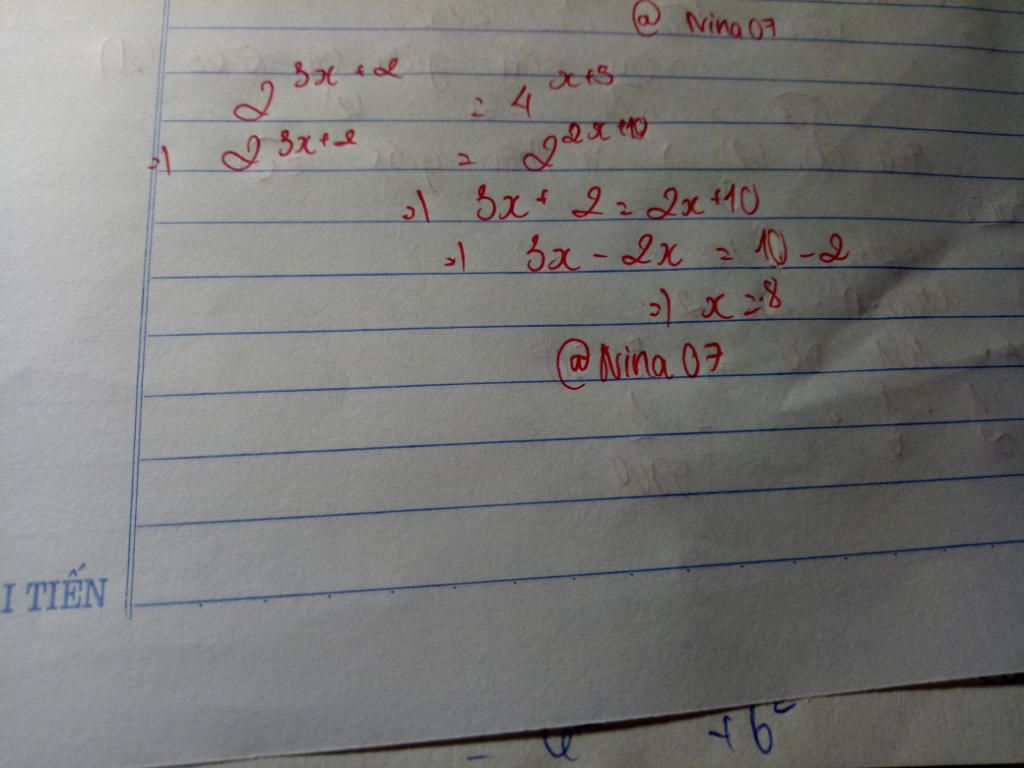 @ Nina 07
2^{3x+2} = 4^{x+5}
=) 2^{3x+2} = 2^{2x+10}
=) 3x + 2 = 2x+10
=) 3x - 2x = 10 - 2
=) x = 8
@Nina 07
I TIẾN
+ b²